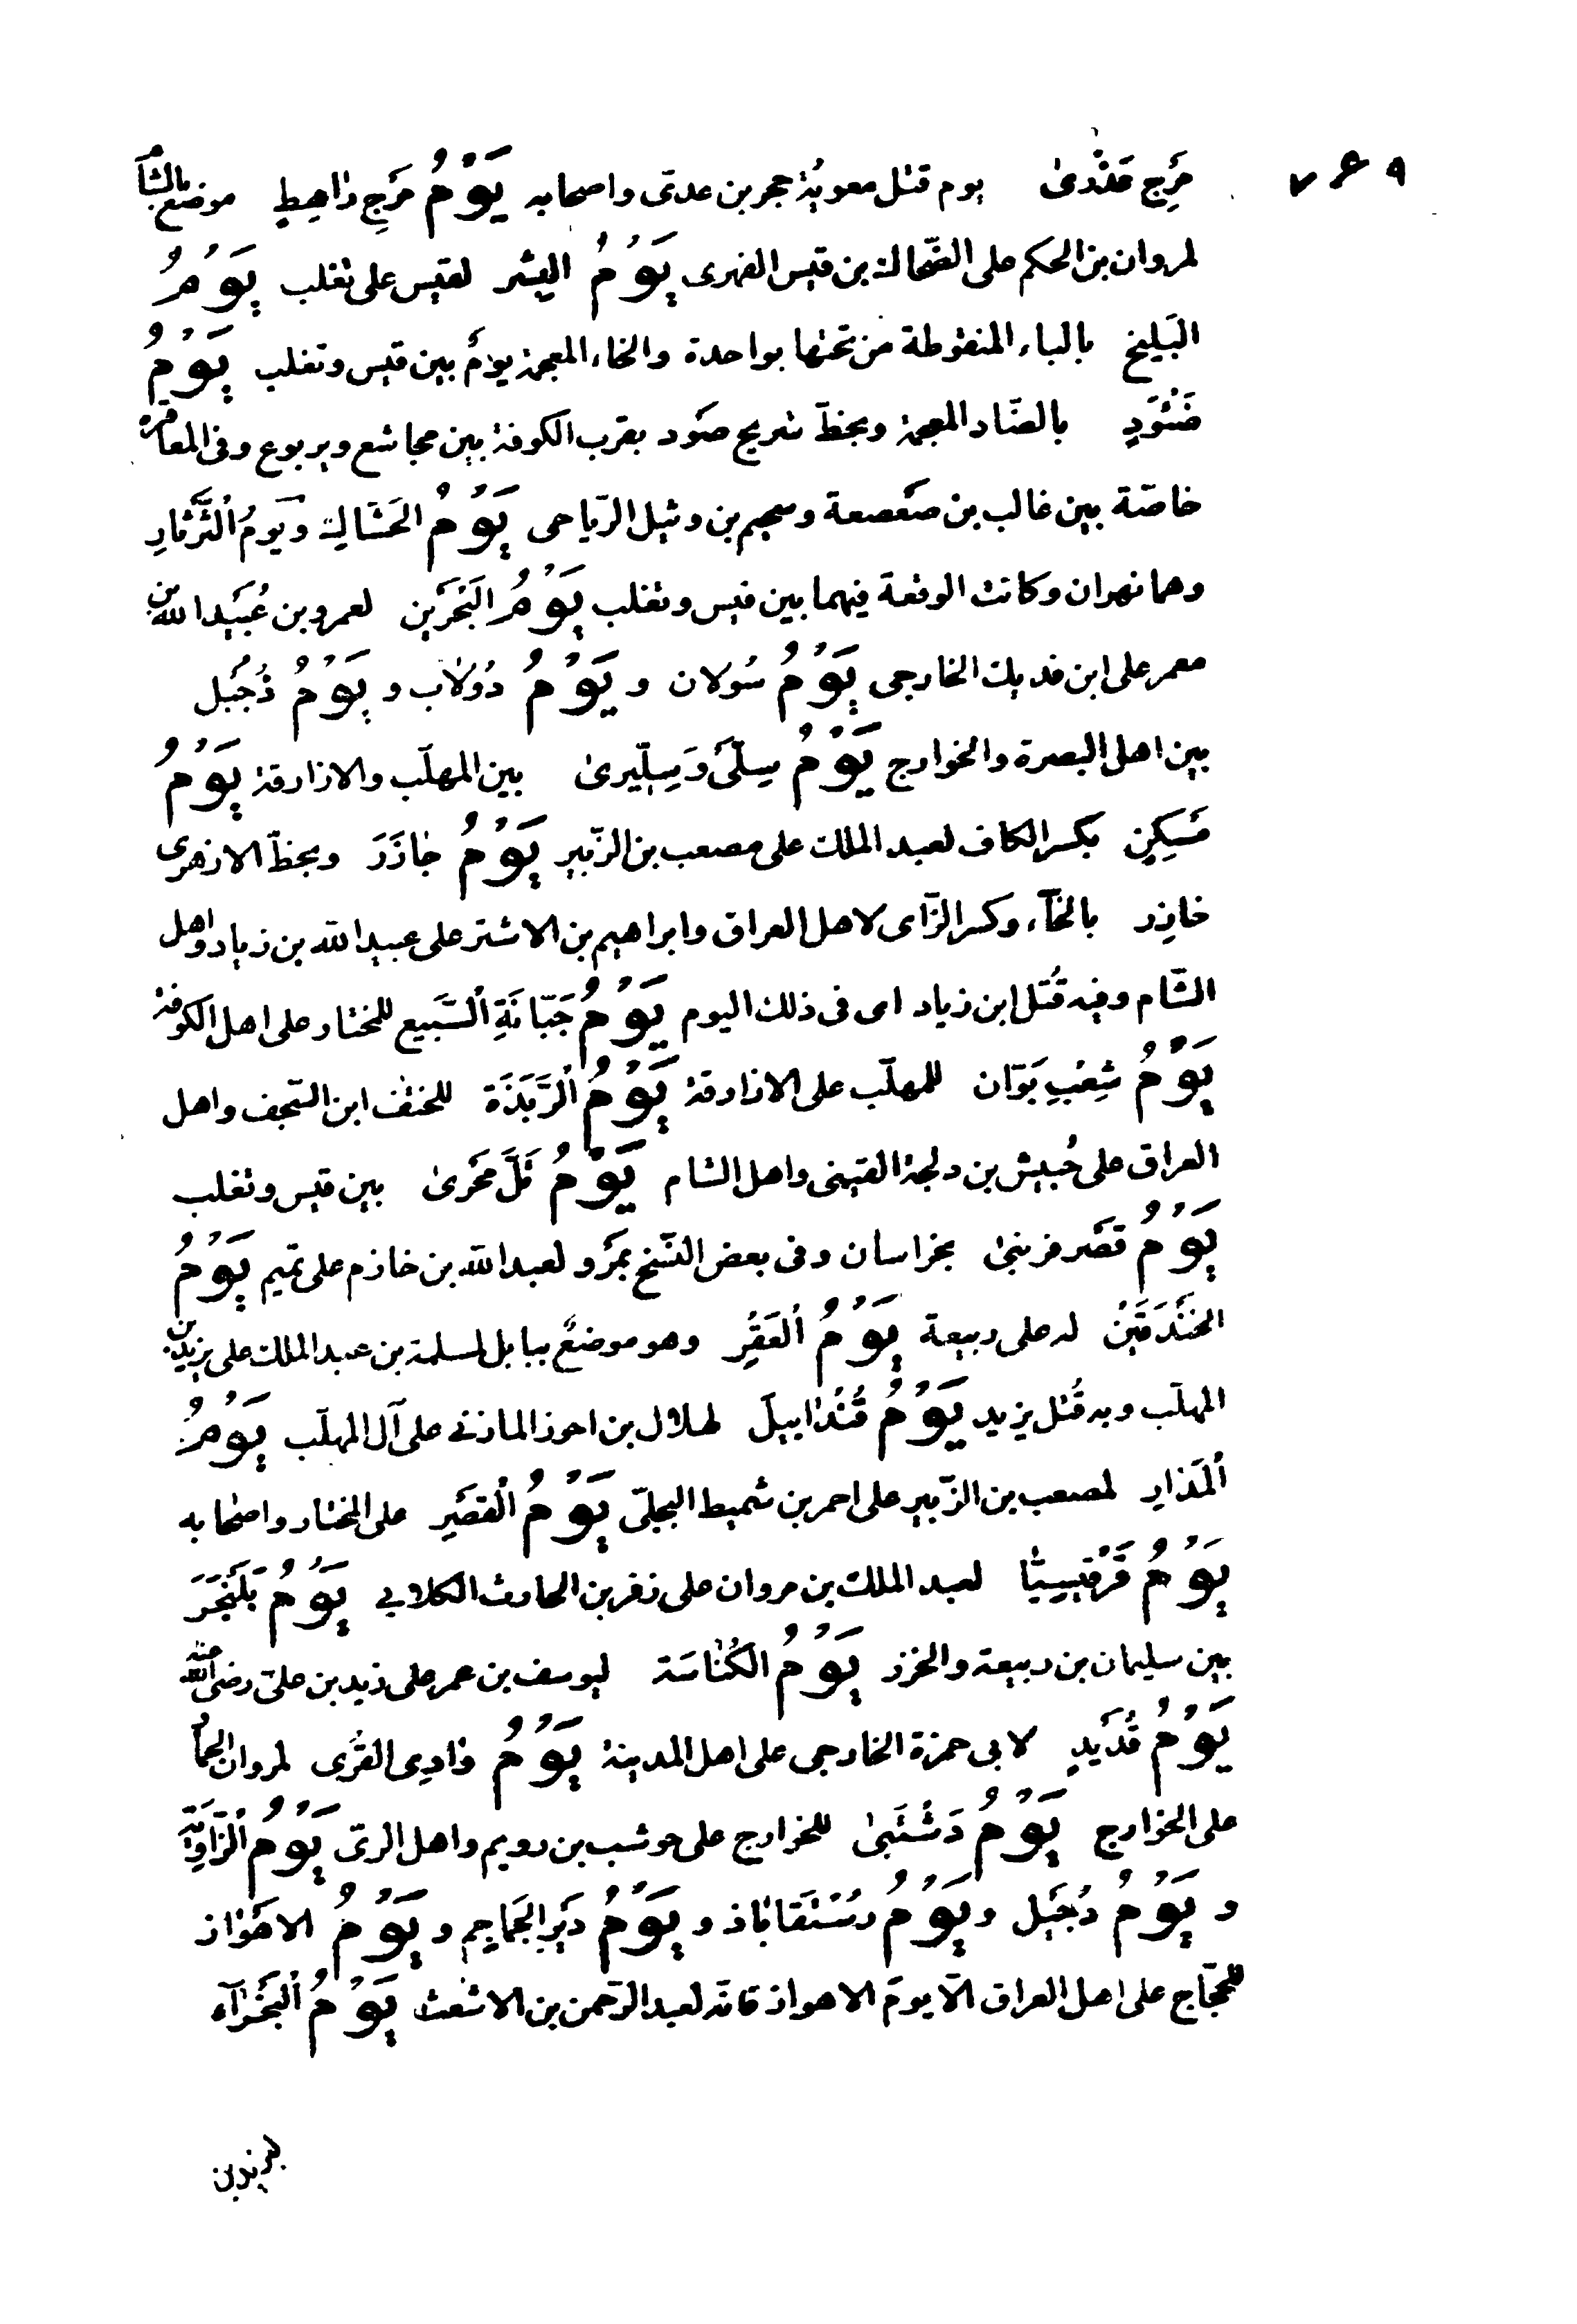 ٧٤٩
مَرْجِ عَذْرىٰ يوم قتل معوية حجر بن عدىّ واصحابه يَوْمُ مَرْجِ رٰاهِطٍ موضع بالشام
لمروان بن الحكم على الضّحاك بن قيس الفهرى يَوْمُ البِشر لقيس على تغلب يَوْمُ
البَليخ بالباء المنقوطة من تحتها بواحدة والخاء المعجمة يومٌ بين قيس وتغلب يَوْمُ
ضَئْوَدٍ بالضّاد المعجمة وبخطّ شريح صَوْد بقرب الكوفة بين مجاشع ويربوع وفى المعاقرة
خاصّة بين غالب بن صَعْصعة وسحيم بن وثيل الرّياحى يَوْمُ الحَشّاك ويَومُ الثَّرْثارِ
وهما نهران وكانت الوقعة فيهما بين قيس وتغلب يَوْمُ البَحْرَين لعمرو بن عُبَيْد الله بن
معمر على ابن فديك الخارجى يَوْمُ سُولان و يَوْمُ دُولاب و يَوْمُ دُجَيْل
بين اهل البصرة والخوارج يَوْمُ سِلّىٰ وَسِلّيرىٰ بين المهلّب والازارقة يَوْمُ
مَسْكِنٍ بكسر الكاف لعبد الملك على مصعب بن الزّبير يَوْمُ جٰازَرَ وبخطّ الازهرى
خازِر بالخآء وكسر الزّاى لاهل العراق وابراهيم بن الاشتر على عبيد الله بن زياد واهل
الشّام وفيه قُتل ابن زياد اى فى ذلك اليوم يَوْمُ جَبّانَةِ السَّبيع للمختار على اهل الكوفة
يَوْمُ شِعْبِ بَوّان للمهلّب على الازارقة يَوْمُ الرَّبَذَة للحنتف ابن السّجف واهل
العراق على حُبيش بن دلجة القينى واهل الشام يَوْمُ تَلِّ مَحْرىٰ بين قيس وتغلب
يَوْمُ قَصْر فرنبىٰ بخراسان وفى بعض النّسخ بمَرْو لعبد الله بن خازم على تميم يَوْمُ
الخَنْدَقَيْنِ له على ربيعة يَوْمُ العَقْرِ وهو موضعٌ ببابل لمسلمة بن عبد الملك على يزيد بن
المهلّب وبه قُتل يزيد يَوْمُ قُنْدٰابيلَ لهلال بن احوز المازنى على آل المهلّب يَوْمُ
المَذارِ لمصعب بن الزّبير على احمر بن شميط البجلىّ يَوْمُ القَصْرِ على المختار واصحابه
يَوْمُ قَرْقيسِيٰا لعبد الملك بن مروان على زفر بن الحارث الكلابى يَوْمُ بَلَنْجَرَ
بين سليمان بن ربيعة والخزر يَوْمُ الكُنٰاسَة ليوسف بن عمر على زيد بن علىّ رضى الله عنه
يَوْمُ قُدَيْدٍ لابى حمزة الخارجى على اهل المدينة يَوْمُ وٰادِى القُرى لمروان الحمار
على الخوارج يَوْمُ دَسْتَبىٰ للخوارج على حوشب بن رويم واهل الرىّ يَوْمُ الزّاوِيَة
و يَوْمُ دُجَيْل و يَوْمُ رسْتَقاباذ و يَوْمُ دَيْرِ الجَماجِم و يَوْمُ الاهْواز
للحجّاج على اهل العراق الّا يومَ الاهواز فانّه لعبد الرّحمن بن الاشعث يَوْمُ البَخْرآء
ليزيد بن